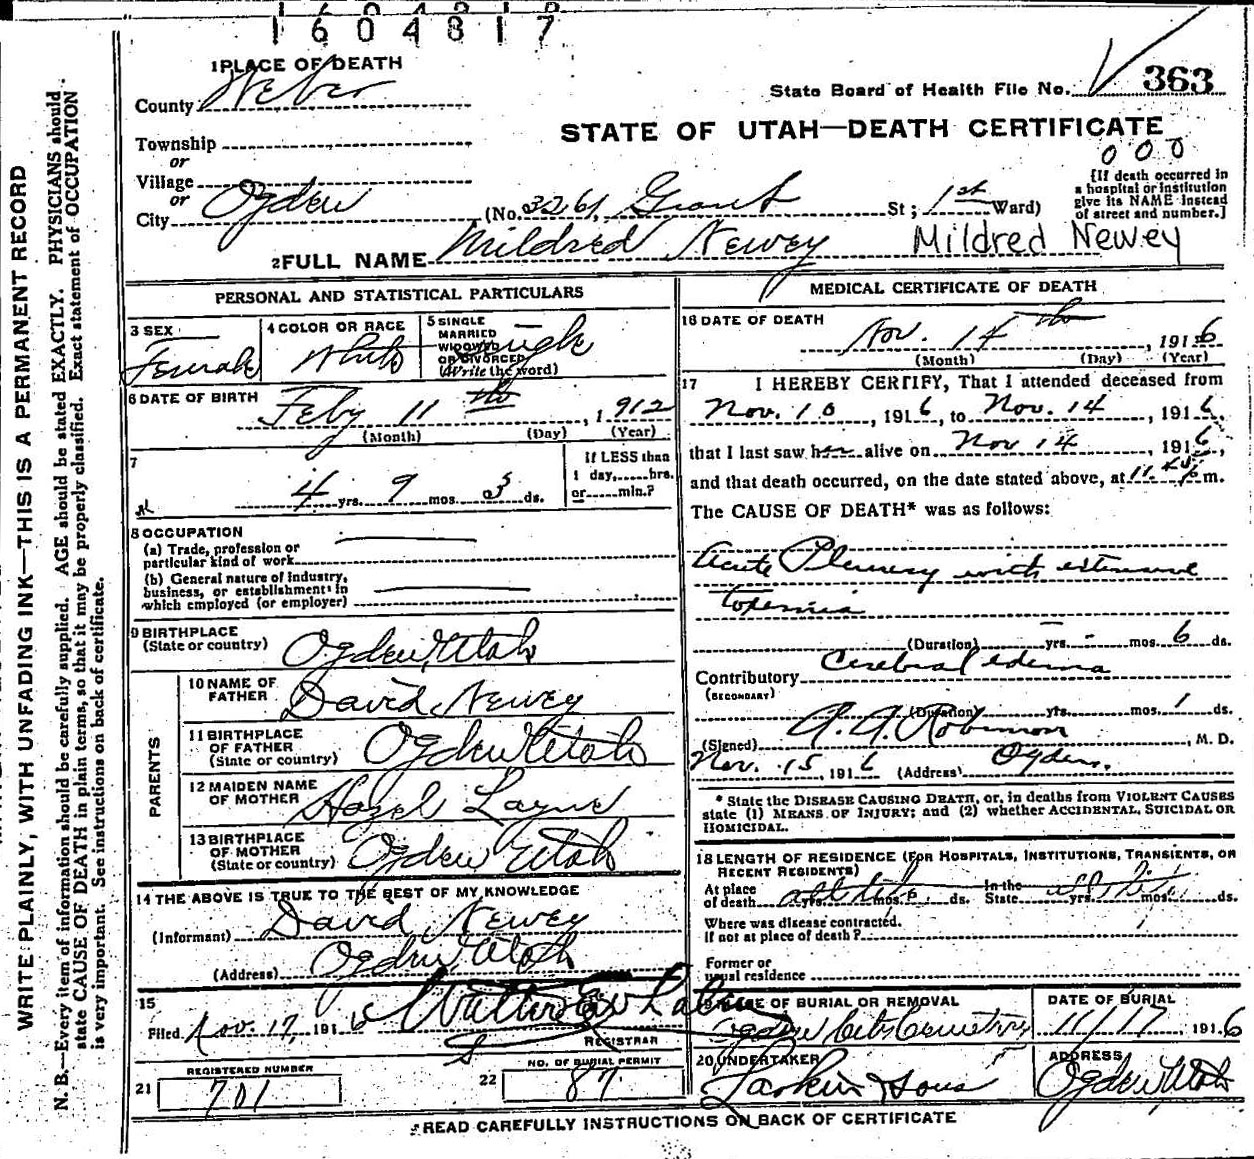 1604817
1 PLACE OF DEATH
County Weber
State Board of Health File No. 363
STATE OF UTAH—DEATH CERTIFICATE
Township
or
Village
or
City Ogden (No. 3261, Grant St; 1st Ward)
000
[If death occurred in a hospital or institution give its NAME instead of street and number.]
2 FULL NAME Mildred Newey Mildred Newey
PERSONAL AND STATISTICAL PARTICULARS
3 SEX Female
4 COLOR OR RACE White
5 SINGLE MARRIED WIDOWED OR DIVORCED (Write the word) Single
6 DATE OF BIRTH
Feby 11th, 1912
(Month) (Day) (Year)
7
4 yrs. 9 mos. 3 ds.
If LESS than 1 day,......hrs. or......min.?
8 OCCUPATION
(a) Trade, profession or particular kind of work
(b) General nature of Industry, business, or establishment in which employed (or employer)
9 BIRTHPLACE (State or country) Ogden Utah
PARENTS
10 NAME OF FATHER David Newey
11 BIRTHPLACE OF FATHER (State or country) Ogden Utah
12 MAIDEN NAME OF MOTHER Hazel Layne
13 BIRTHPLACE OF MOTHER (State or country) Ogden Utah
14 THE ABOVE IS TRUE TO THE BEST OF MY KNOWLEDGE
(Informant) David Newey
(Address) Ogden Utah
15
Filed Nov. 17, 1916
REGISTRAR
REGISTERED NUMBER
21 701
NO. OF BURIAL PERMIT
22 87
MEDICAL CERTIFICATE OF DEATH
16 DATE OF DEATH
Nov. 14th, 1916
(Month) (Day) (Year)
17 I HEREBY CERTIFY, That I attended deceased from
Nov. 10, 1916, to Nov. 14, 1916,
that I last saw her alive on Nov 14, 1916,
and that death occurred, on the date stated above, at 11.45 p m.
The CAUSE OF DEATH* was as follows:
Acute Pleurisy with extensive
Toxemia
(Duration) yrs. mos. 6 ds.
Contributory Cerebral edema
(SECONDARY)
(Duration) yrs. mos. 1 ds.
(Signed) Robinson, M. D.
Nov. 15, 1916 (Address) Ogden.
* State the DISEASE CAUSING DEATH, or, in deaths from VIOLENT CAUSES
state (1) MEANS OF INJURY; and (2) whether ACCIDENTAL, SUICIDAL OR
HOMICIDAL.
18 LENGTH OF RESIDENCE (FOR HOSPITALS, INSTITUTIONS, TRANSIENTS, OR
RECENT RESIDENTS)
At place of death all life yrs. mos. ds. In the State all life yrs. mos. ds.
Where was disease contracted.
If not at place of death?
Former or
usual residence
19 PLACE OF BURIAL OR REMOVAL
Ogden City Cemetery
DATE OF BURIAL
11/17, 1916
20 UNDERTAKER
Larkin & Sons
ADDRESS
Ogden Utah
READ CAREFULLY INSTRUCTIONS ON BACK OF CERTIFICATE
WRITE PLAINLY, WITH UNFADING INK—THIS IS A PERMANENT RECORD
N. B.—Every item of information should be carefully supplied. AGE should be stated EXACTLY. PHYSICIANS should
state CAUSE OF DEATH in plain terms, so that it may be properly classified. Exact statement of OCCUPATION
is very important. See instructions on back of certificate.